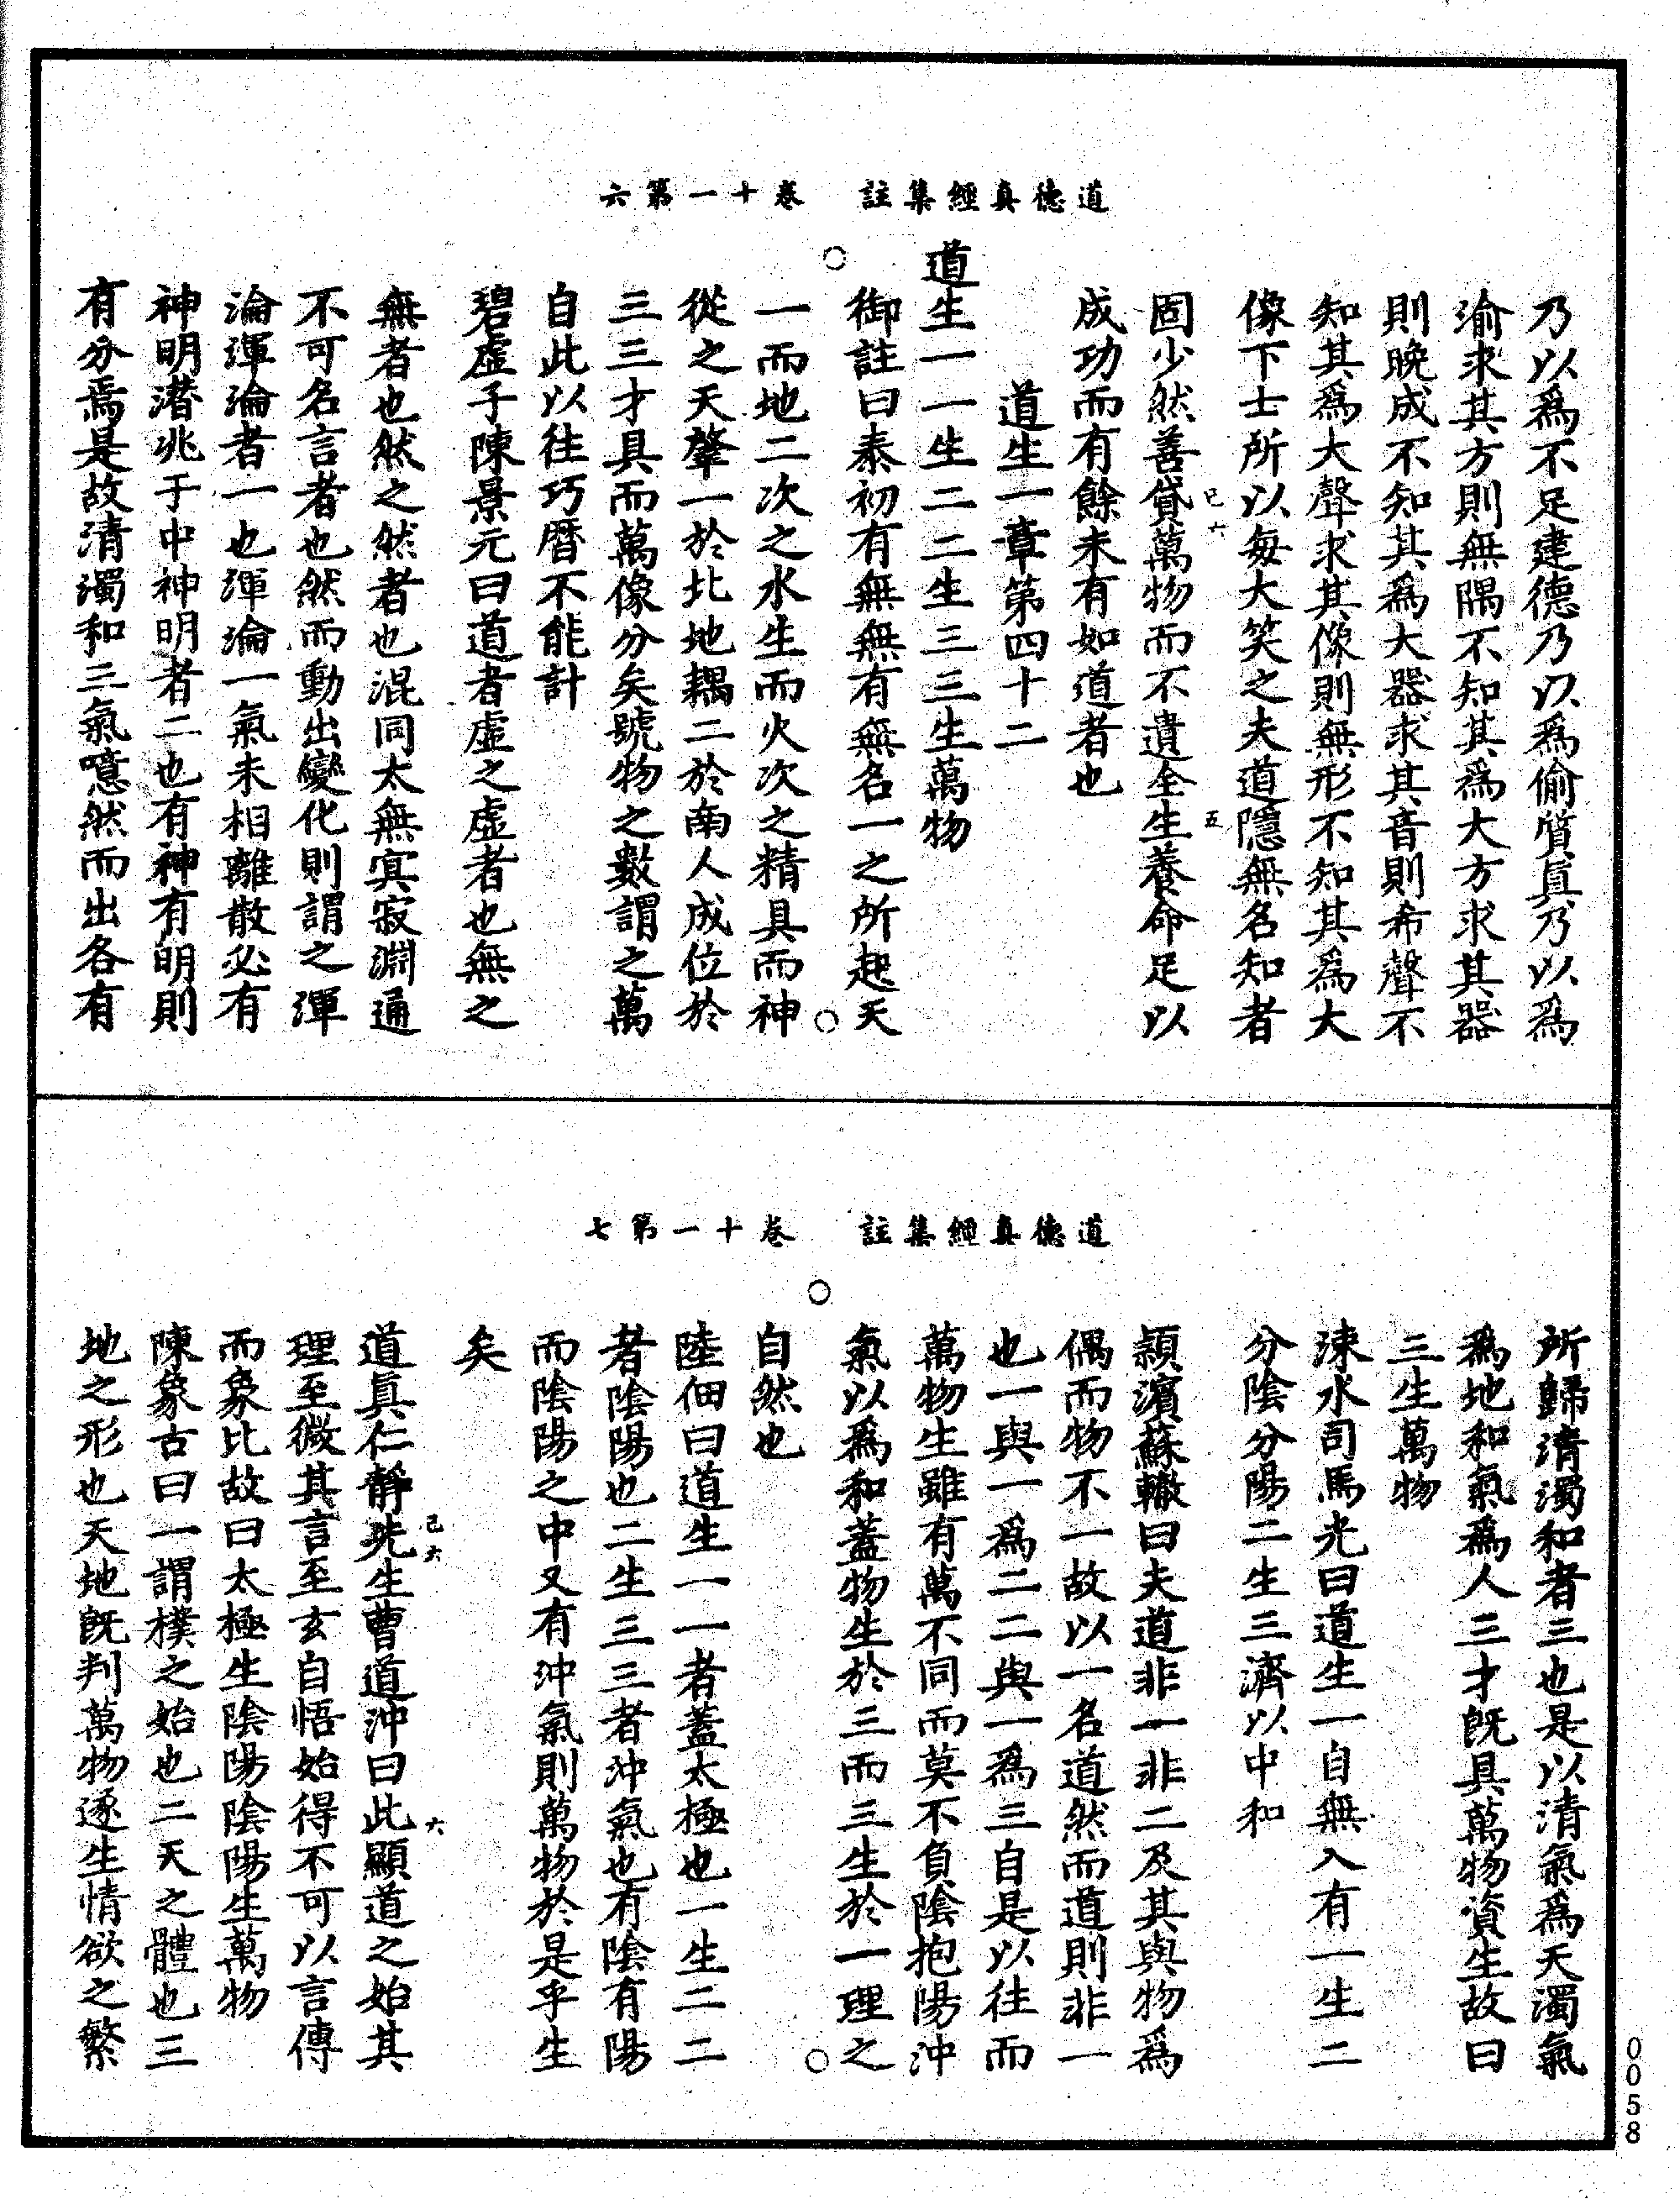 道德真經集註　卷十一第六
乃以爲不足建德乃以爲偷質真乃以爲
渝求其方則無隅不知其爲大方求其器
則晚成不知其爲大器求其音則希聲不
知其爲大聲求其像則無形不知其爲大
像下士所以每大笑之夫道隱無名知者
己六　五
固少然善貸萬物而不遺全生養命足以
成功而有餘未有如道者也
道生一章第四十二
道生一一生二二生三三生萬物
御註曰泰初有無無有無名一之所起天
一而地二次之水生而火次之精具而神
從之天肇一於北地耦二於南人成位於
三三才具而萬像分矣號物之數謂之萬
自此以往巧曆不能計
碧虛子陳景元曰道者虛之虛者也無之
無者也然之然者也混同太無寞寂淵通
不可名言者也然而動出變化則謂之渾
淪渾淪者一也渾淪一氣未相離散必有
神明潛兆于中神明者二也有神有明則
有分焉是故清濁和三氣噫然而出各有
道德真經集註　卷十一第七
所歸清濁和者三也是以清氣爲天濁氣
爲地和氣爲人三才既具萬物資生故曰
三生萬物
涑水司馬光曰道生一自無入有一生二
分陰分陽二生三濟以中和
潁濱蘇轍曰夫道非一非二及其與物爲
偶而物不一故以一名道然而道則非一
也一與一爲二二與一爲三自是以往而
萬物生雖有萬不同而莫不負陰抱陽沖
氣以爲和蓋物生於三而三生於一理之
自然也
陸佃曰道生一一者蓋太極也一生二二
者陰陽也二生三三者沖氣也有陰有陽
而陰陽之中又有沖氣則萬物於是乎生
矣
己六　六
道真仁靜先生曹道沖曰此顯道之始其
理至微其言至玄自悟始得不可以言傳
而象比故曰太極生陰陽陰陽生萬物
陳象古曰一謂樸之始也二天之體也三
地之形也天地既判萬物逐生情欲之繁
0058